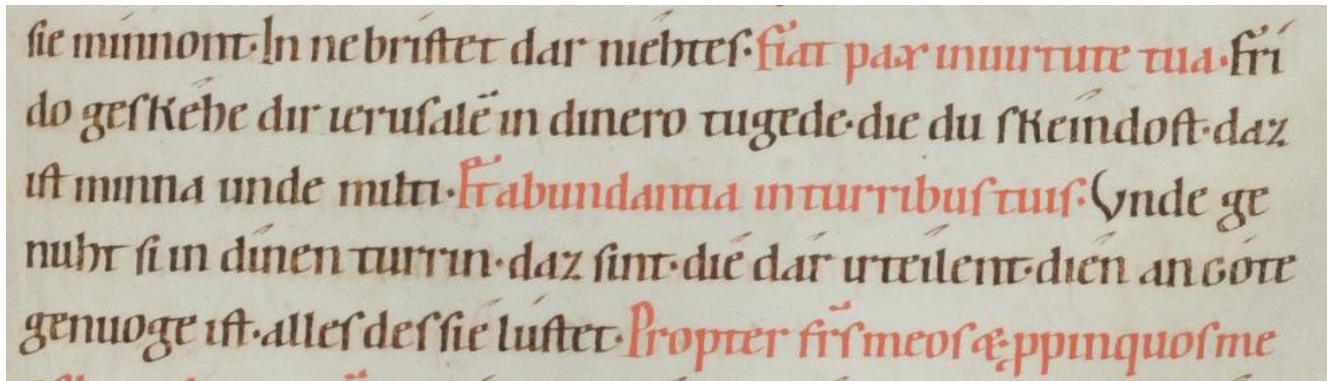 sie minnont·In nebristet dar niéhtes·fíat pax inuirtute tua·frí
do geskéhe dir ierusalē in dinero tugede·die du skeíndost·daz
ist minna unde milti·Et abundantia inturribus tuis·Vnde ge
nuht si in dínen turrin·daz sint·dié dár irteílent·dién an góte
genuoge ist·alles des sié lústet·Propter fr̄s meos & ppinquos me